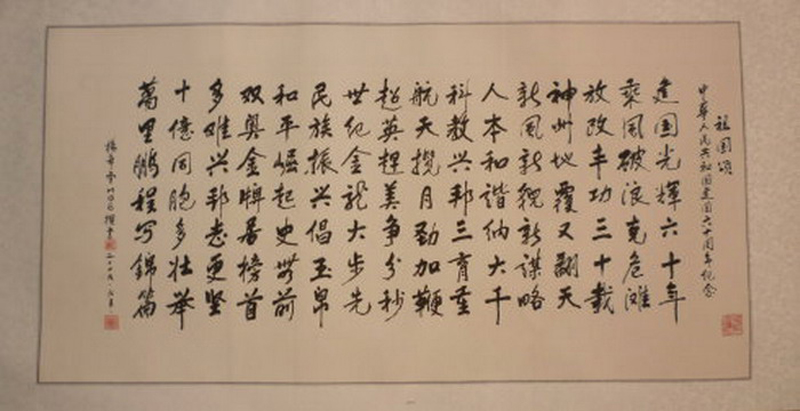 祖国頌
中華人民共和国建国六十周年纪念
建国光輝六十年
乘風破浪克危滩
放改丰功三十载
神州地覆又翻天
新風新貌新谋略
人本和谐纳大千
科教兴邦三育重
航天揽月劲加鞭
超英趕美争分秒
世纪金龍大步先
民族振兴倡玉帛
和平崛起史無前
双奥金牌居榜首
多难兴邦志更坚
十億同胞多壮举
萬里鹏程写錦篇
撰書